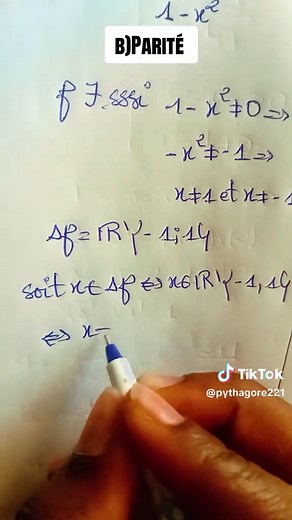 1-x²
b)PARITÉ
f ∃ sssi 1-x²≠0 =>
-x²≠-1 =>
x≠1 et x≠-1
Δf = IR\{-1;1}
soit x∈Δf <=> x∈IR\{-1,1}
<=> x
TikTok
@pythagore221